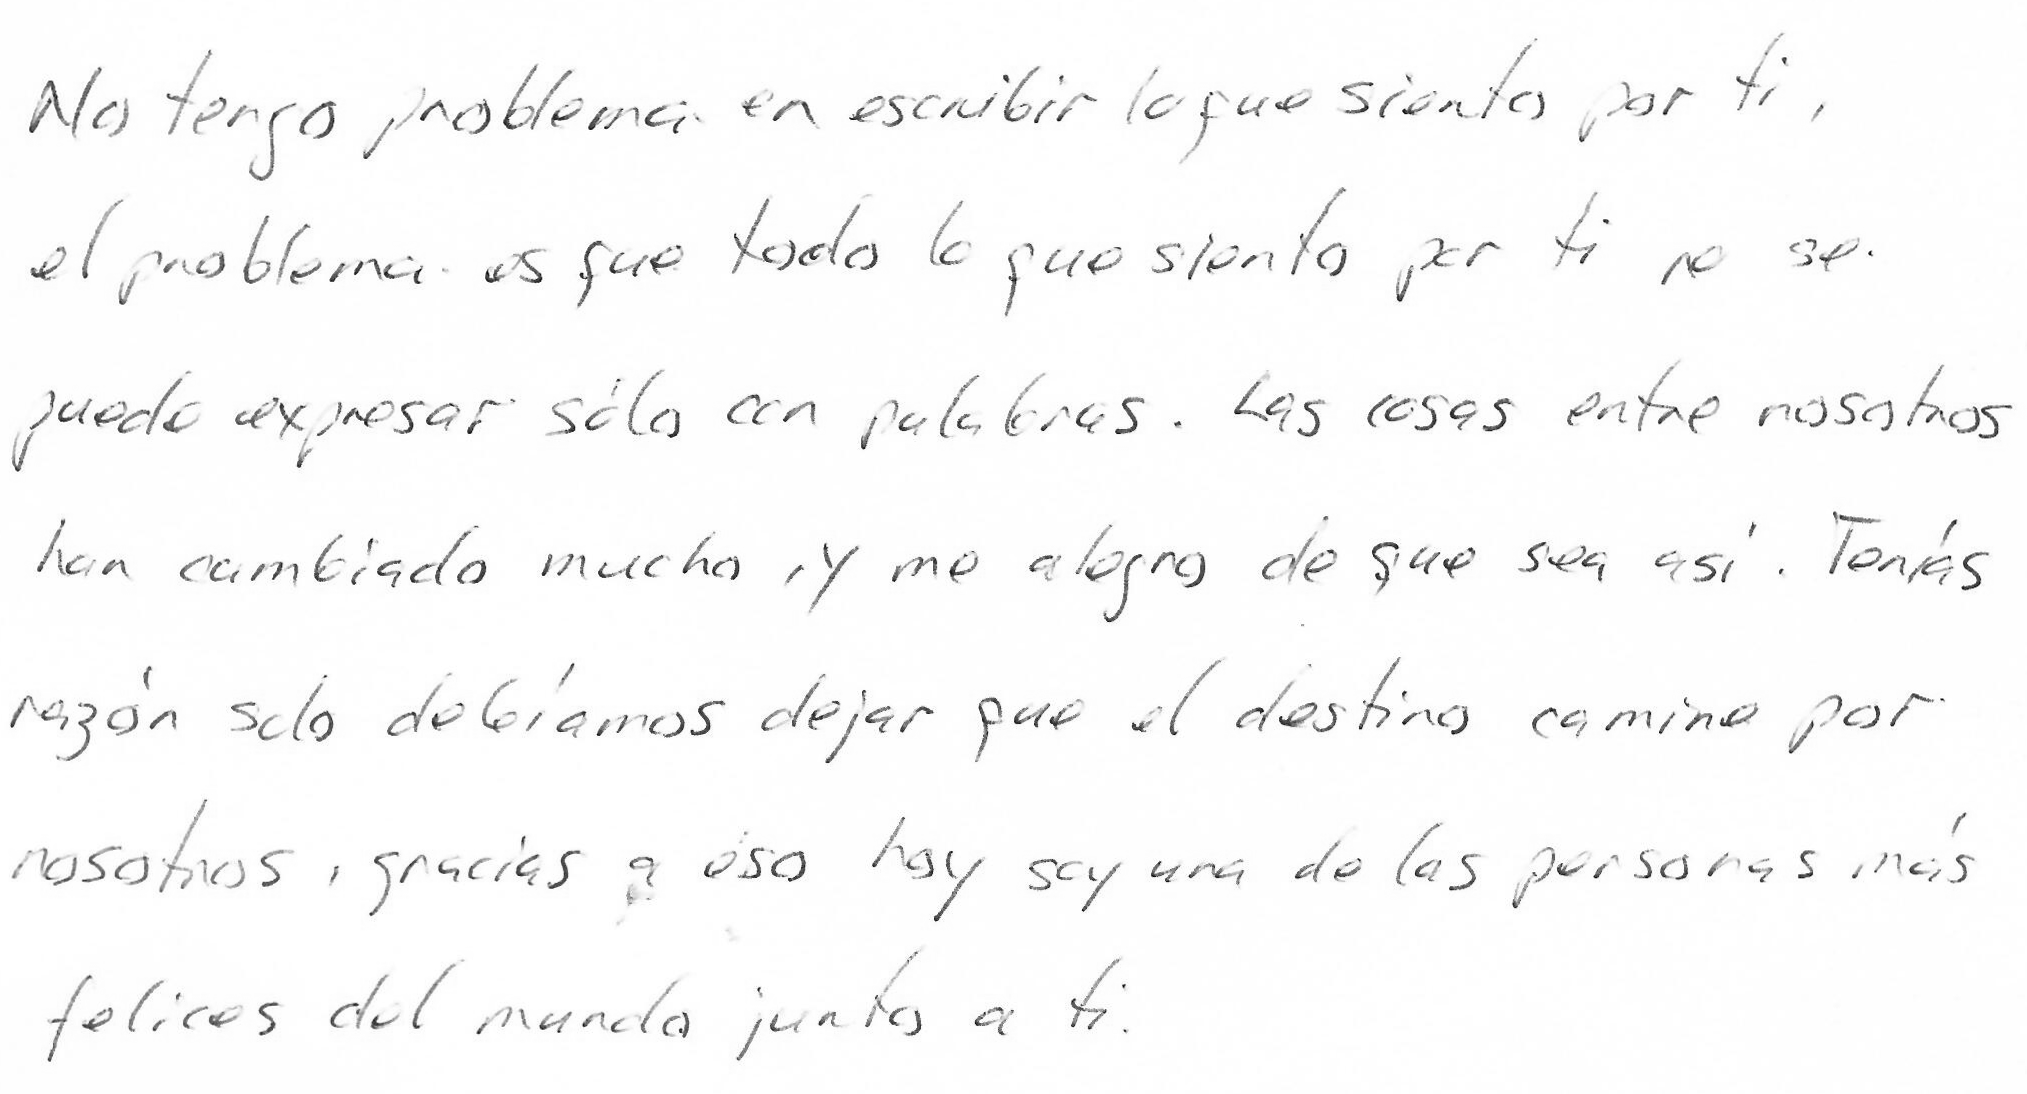 No tengo problema en escribir lo que siento por ti,
el problema es que todo lo que siento por ti no se
puede expresar sólo con palabras. Las cosas entre nosotros
han cambiado mucho, y me alegro de que sea así. Tenías
razón solo debíamos dejar que el destino camine por
nosotros, gracias a eso hoy soy una de las personas más
felices del mundo junto a ti.